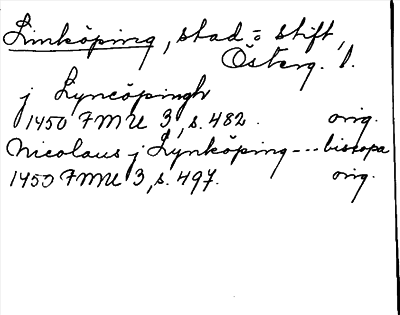 Linköping, stad o stift,
Österg. l.
j Lyncöpingh
1450 FMU 3, s. 482. orig.
Nicolaus j Lynköping --- biscopa
1453 FMU 3, s. 497. orig.